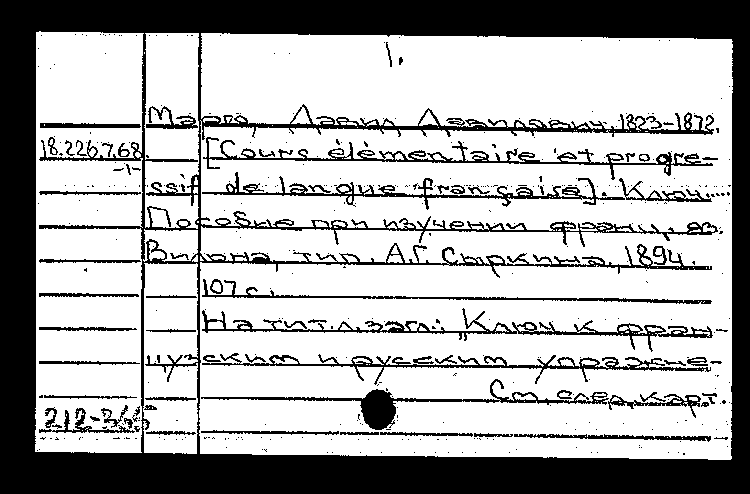 1.
Марго, Давид Давидович, 1823-1872.
18.226.7.68. [Cours élémentaire et progre-
-1-
ssif de langue française]. Ключ....
Пособие при изучении франц. яз.
Вильна, тип. А.Г. Сыркина, 1894.
107 с.
На тит.л. загл.: „Ключ к фран-
цузским и русским упражне-
См. след. карт.
212-365